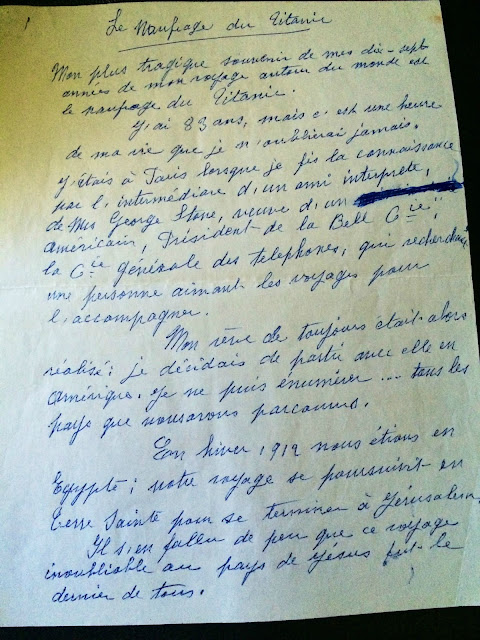 1
Le Naufrage du Titanic
Mon plus tragique souvenir de mes dix-sept
années de mon voyage autour du monde est
le naufrage du Titanic.
J'ai 83 ans, mais c'est une heure
de ma vie que je n'oublierai jamais.
J'étais à Paris lorsque je fis la connaissance
par l'intermédiaire d'un ami interprète,
de Mrs George Stone, veuve d'un
américain, Président de la Bell Cie,
la Cie générale des telephones, qui recherchait
une personne aimant les voyages pour
l'accompagner.
Mon rêve de toujours était alors
réalisé: je décidais de partir avec elle en
Amérique. Je ne puis énumérer ... tous les
pays que nous avons parcourus.
En hiver 1912 nous étions en
Egypte; notre voyage se poursuivit en
Terre Sainte pour se terminer à Jérusalem.
Il s'en fallut de peu que ce voyage
inoubliable au pays de Jésus fut le
dernier de tous.